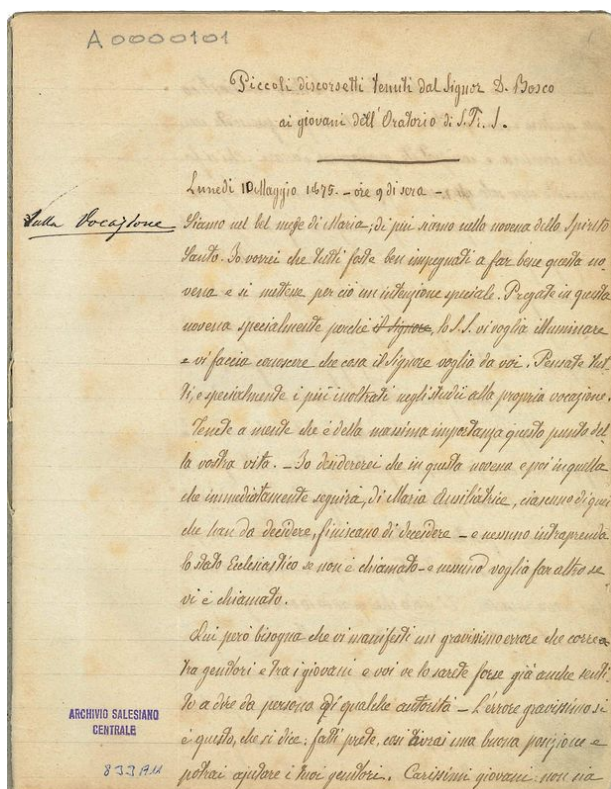 A0000101
Piccoli discorsetti tenuti dal Signor D. Bosco
ai giovani dell'Oratorio di S. Fr. S.
Lunedi 10 Maggio 1875. - ore 9 di sera -
Sulla Vocazione
Siamo nel bel mese di Maria; di più siamo nella novena dello Spirito
Santo. Io vorrei che tutti foste ben impegnati a far bene questa no
vena e si mettesse per ciò un'intenzione speciale. Pregate in questa
novena specialmente perché il Signore, lo S.S. vi voglia illuminare
e vi faccia conoscere che cosa il Signore voglia da voi. Pensate tut
ti, e specialmente i più inoltrati negli studii alla propria vocazione.
Tenete a mente che è della massima importanza questo punto del
la vostra vita. - Io desidererei che in questa novena e poi in quella
che immediatamente seguirà, di Maria Ausiliatrice, ciascuno di quei
che han da decidere, finiscano di decidere - e nessuno intraprenda
lo stato Ecclesiastico se non è chiamato - e nessuno voglia far altro se
vi è chiamato.
Qui però bisogna che vi manifesti un gravissimo errore che corre
tra genitori e tra i giovani e voi ve lo sarete forse già anche senti
to a dire da persona di qualche autorità - L'errore gravissimo si
è questo, che si dice: fatti prete, così avrai una buona posizione e
potrai ajutare i tuoi genitori. Carissimi giovani: non sia
ARCHIVIO SALESIANO
CENTRALE